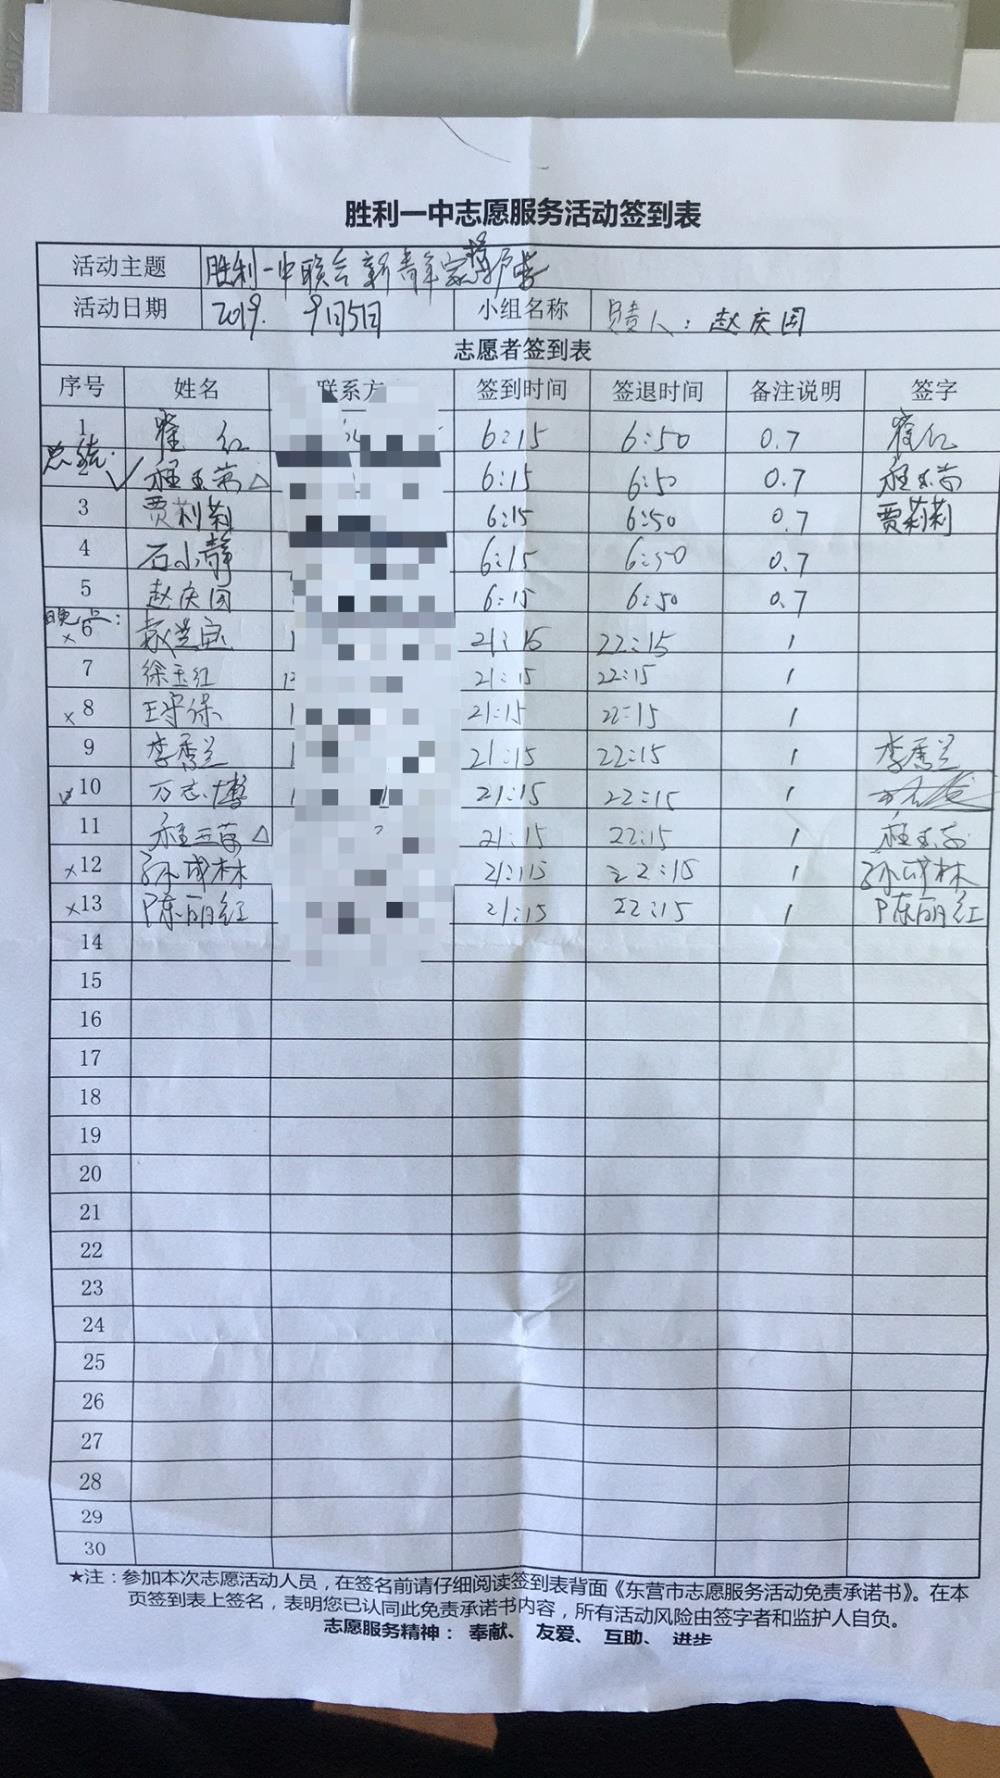 胜利一中志愿服务活动签到表
活动主题 胜利一中联合新青年家长护学
活动日期 2019. 9月5日 小组名称 负责人：赵庆国
志愿者签到表
序号 姓名 联系方 签到时间 签退时间 备注说明 签字
1 崔红 6:15 6:50 0.7 崔红
2 ✓ 程玉苗 △ 6:15 6:50 0.7 程玉苗
3 贾莉莉 6:15 6:50 0.7 贾莉莉
4 石小静 6:15 6:50 0.7
5 赵庆国 6:15 6:50 0.7
晚上：
×6 21:15 22:15 1
7 徐玉红 21:15 22:15 1
×8 王守保 21:15 22:15 1
9 李秀兰 21:15 22:15 1 李秀兰
10 万志博 21:15 22:15 1
11 程玉苗 △ 21:15 22:15 1 程玉苗
×12 孙成林 21:15 22:15 1 孙成林
×13 陈丽红 21:15 22:15 1 陈丽红
14
15
16
17
18
19
20
21
22
23
24
25
26
27
28
29
30
★注：参加本次志愿活动人员，在签名前请仔细阅读签到表背面《东营市志愿服务活动免责承诺书》。在本
页签到表上签名，表明您已认同此免责承诺书内容，所有活动风险由签字者和监护人自负。
志愿服务精神：奉献、友爱、互助、进步